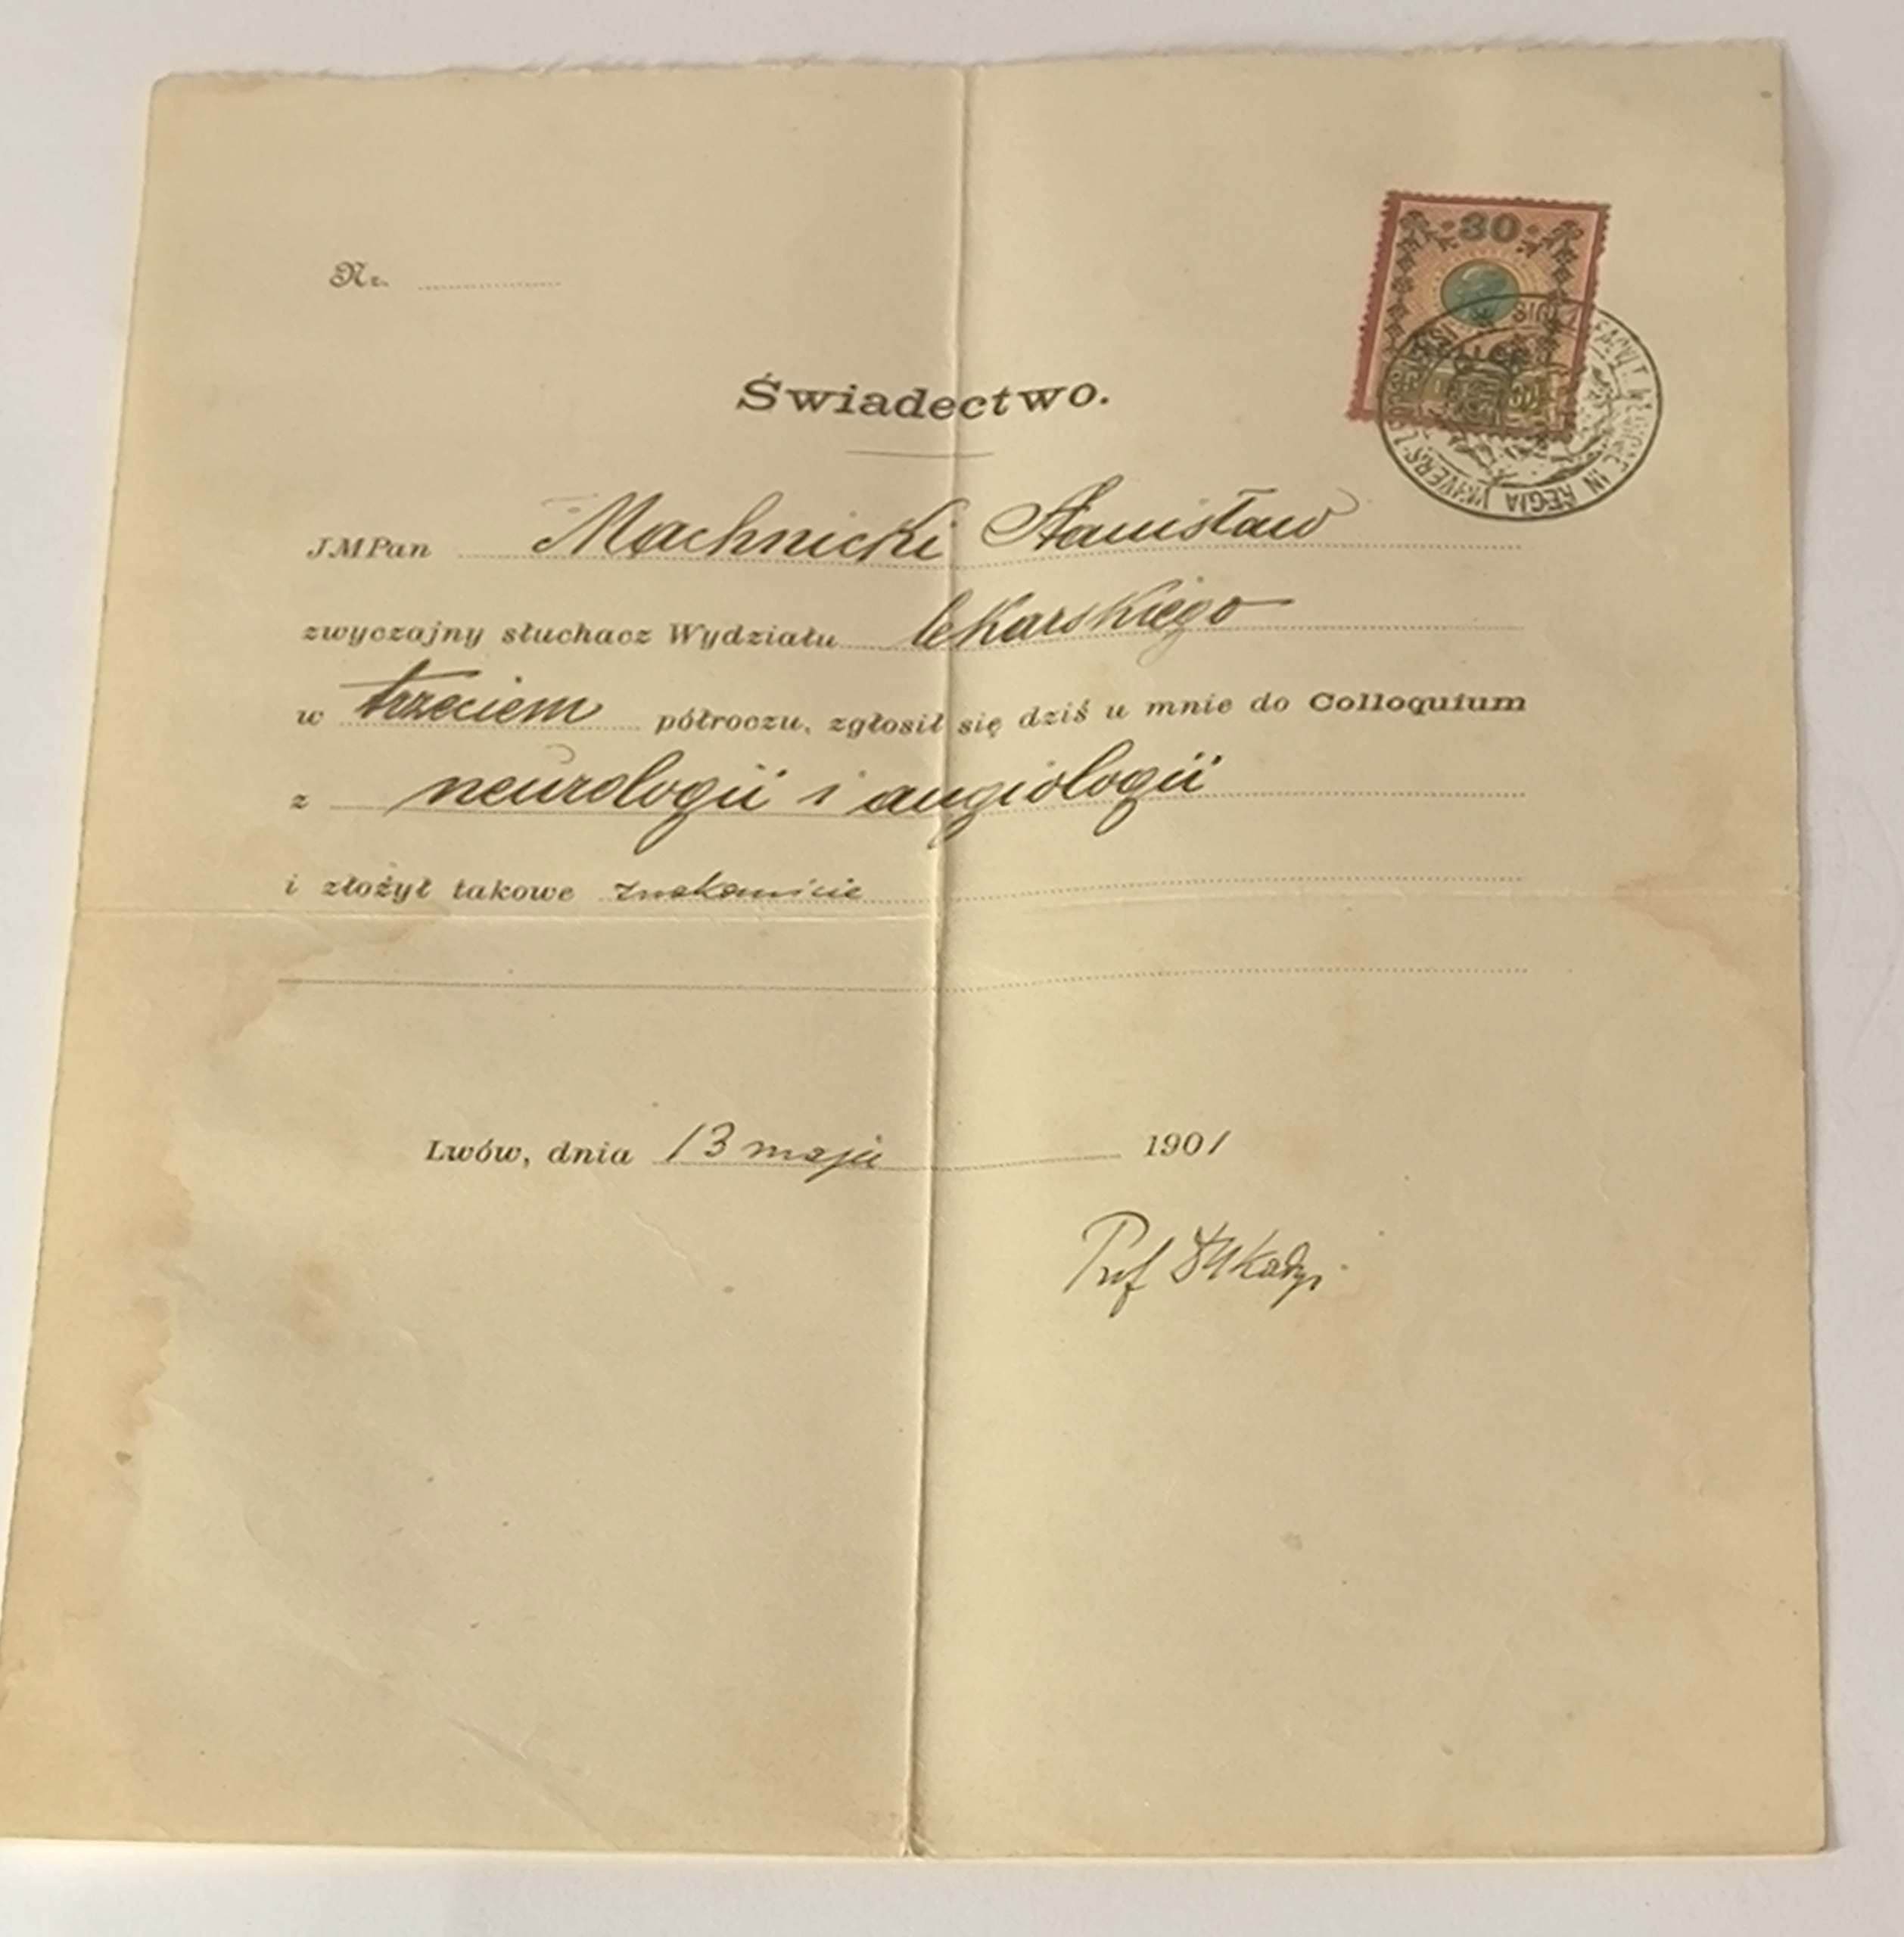 30
Nr.
Świadectwo.
JMPan Machnicki Stanisław
zwyczajny słuchacz Wydziału lekarskiego
w trzeciem półroczu, zgłosił się dziś u mnie do Colloquium
z neurologii i angiologii
i złożył takowe znakomicie
Lwów, dnia 13 maja 1901
Prof Kadyi
FACVLT. MEDICAE IN REGIA VNIVERS.